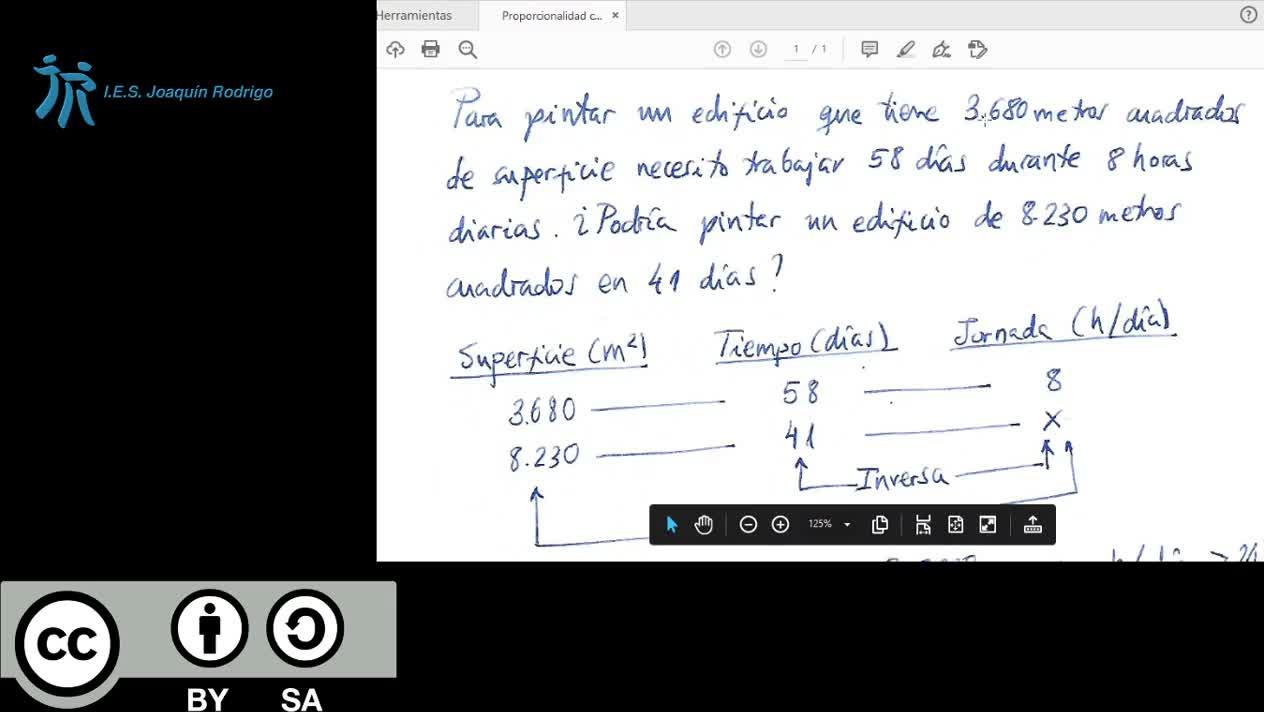 Herramientas
Proporcionalidad c... ×
1 / 1
I.E.S. Joaquín Rodrigo
Para pintar un edificio que tiene 3.680 metros cuadrados
de superficie necesito trabajar 58 días durante 8 horas
diarias. ¿Podría pintar un edificio de 8.230 metros
cuadrados en 41 días?
Superficie (m²) Tiempo (días) Jornada (h/día)
3.680 58 8
8.230 41 X
Inversa
125%
CC
BY SA